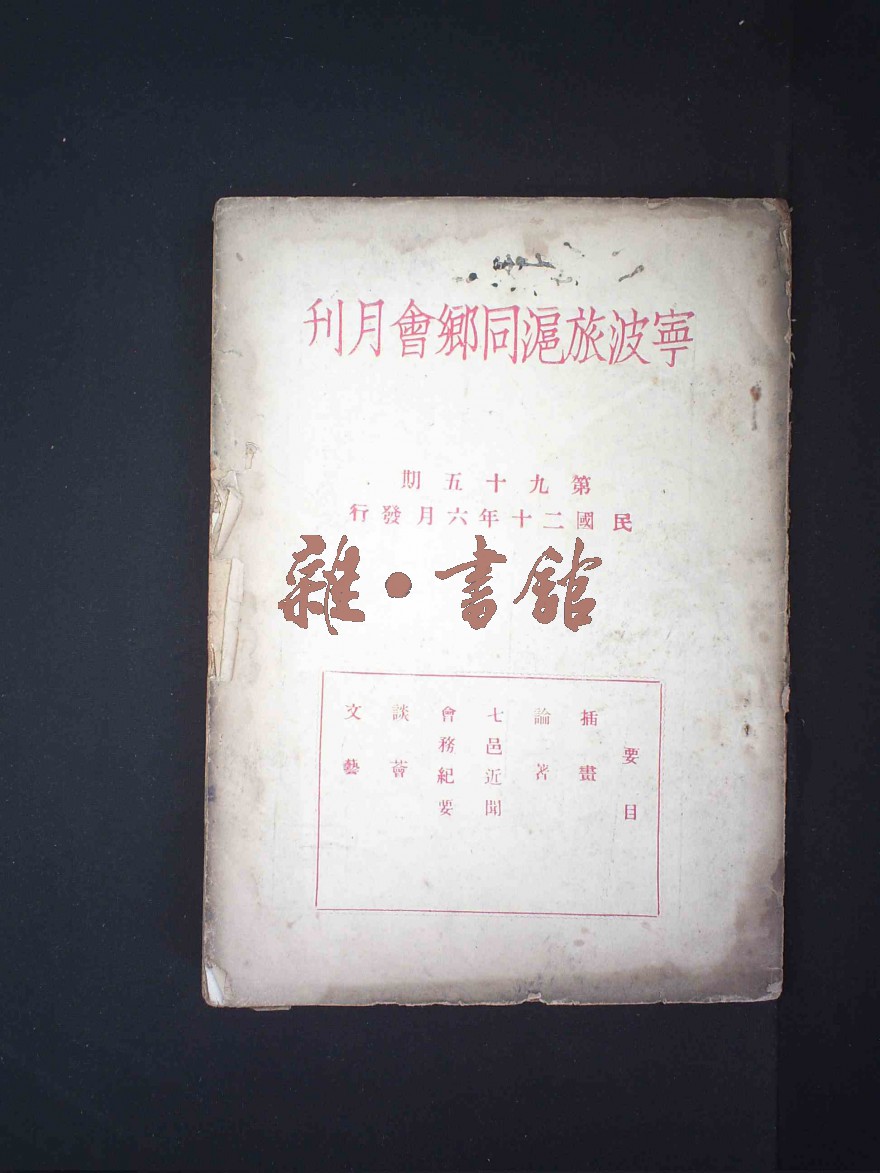 寧波旅滬同鄉會月刊
第九十五期
民國二十年六月發行
雜·書館
要目
插畫
論著
七邑近聞
會務紀要
談薈
文藝